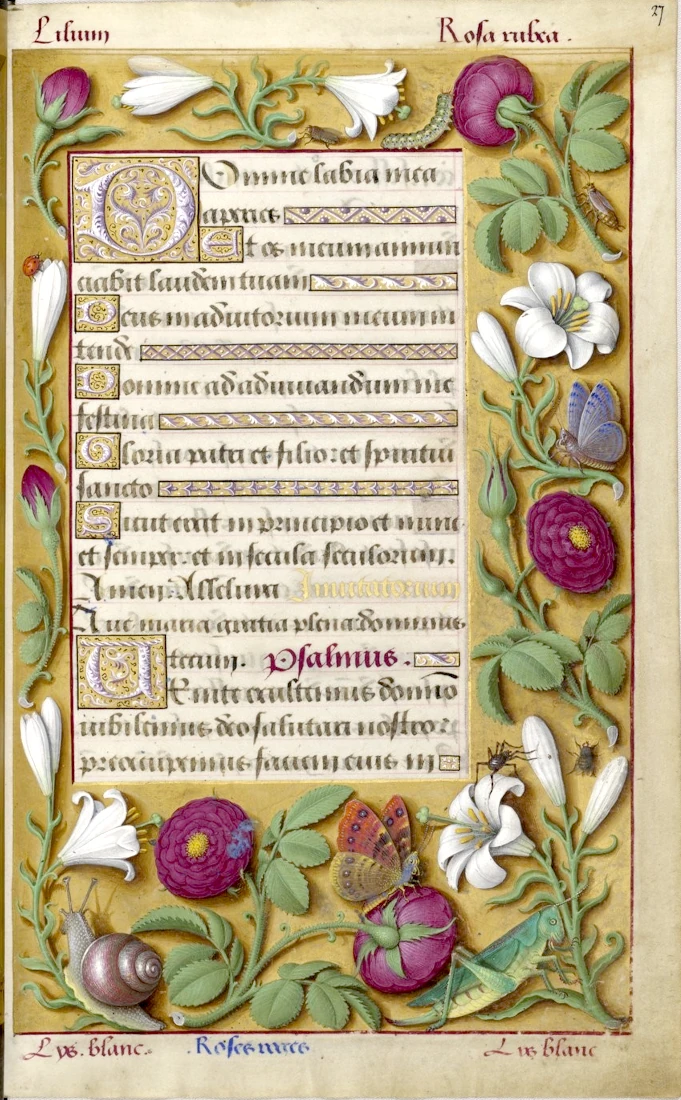 27
Lilium
Rosa rubea.
Domine labia mea
aperies
Et os meum annun
ciabit laudem tuam
Deus in adiutorium meum in
tende
Domine ad adiuuandum me
festina
Gloria patri et filio: et spiritui
sancto
Sicut erat in principio et nunc
et semper: et in secula seculorum.
Amen. Alleluia Inuitatorium
Aue maria gratia plena dominus
tecum. Psalmus.
Uenite exultemus domino
iubilemus deo salutari nostro:
preoccupemus faciem eius in
Lys. blanc. Roses Lys blanc